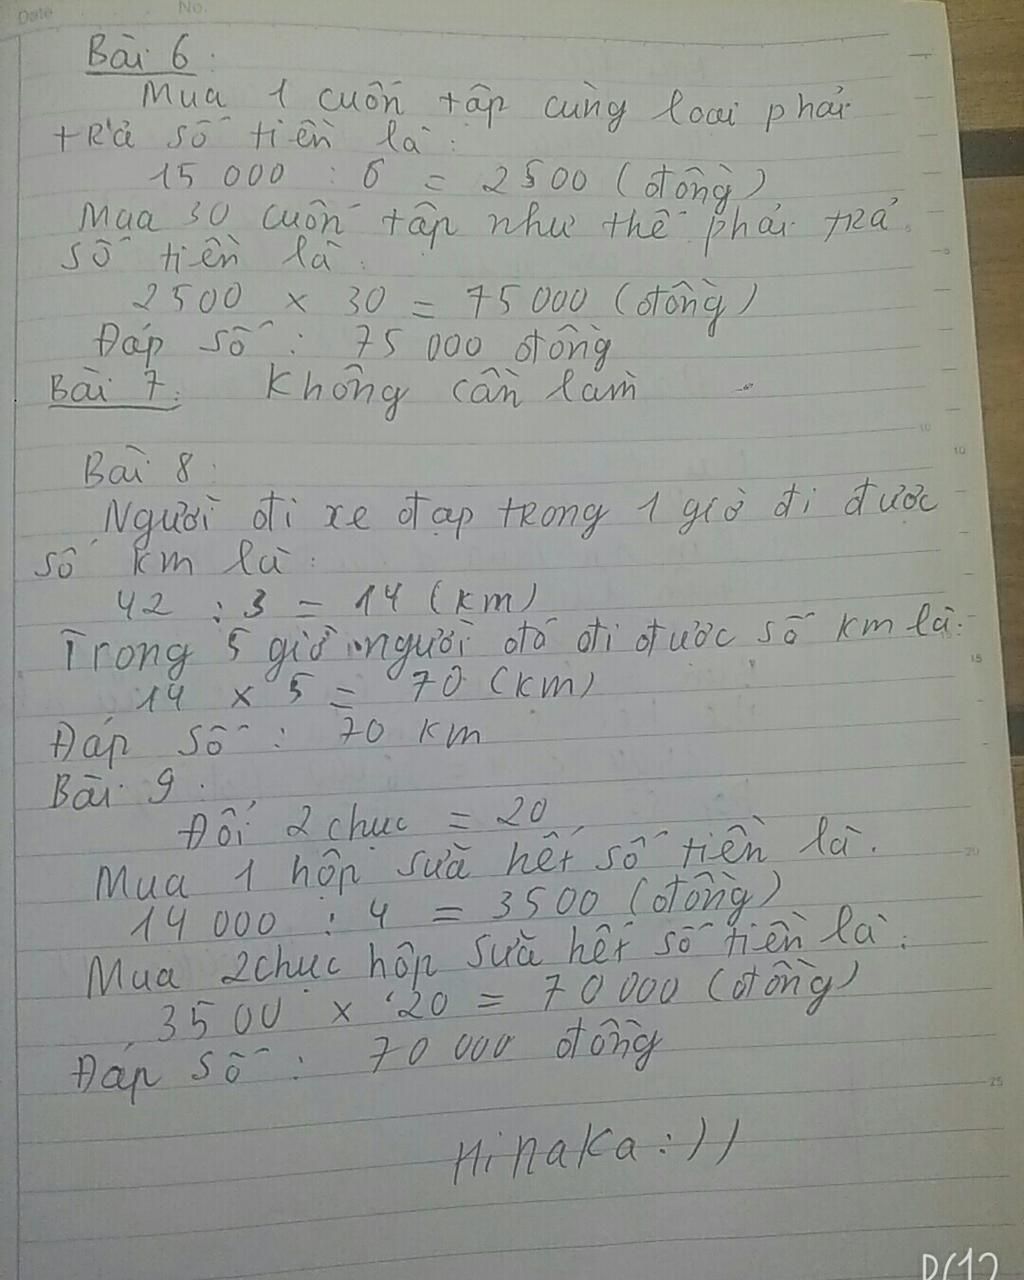 Date
No.
Bài 6:
Mua 1 cuốn tập cùng loại phải
trả số tiền là:
15 000 : 6 = 2500 (đồng)
Mua 30 cuốn tập như thế phải trả
số tiền là:
2500 x 30 = 75 000 (đồng)
Đáp số: 75 000 đồng
Bài 7: Không cần làm
Bài 8:
Người đi xe đạp trong 1 giờ đi được
số km là:
42 : 3 = 14 (km)
Trong 5 giờ người đó đi được số km là:
14 x 5 = 70 (km)
Đáp số: 70 km
Bài 9:
Đổi 2 chục = 20
Mua 1 hộp sữa hết số tiền là:
14 000 : 4 = 3500 (đồng)
Mua 2 chục hộp sữa hết số tiền là:
3500 x 20 = 70 000 (đồng)
Đáp số: 70 000 đồng
Hinaka :))
10
10
15
20
25